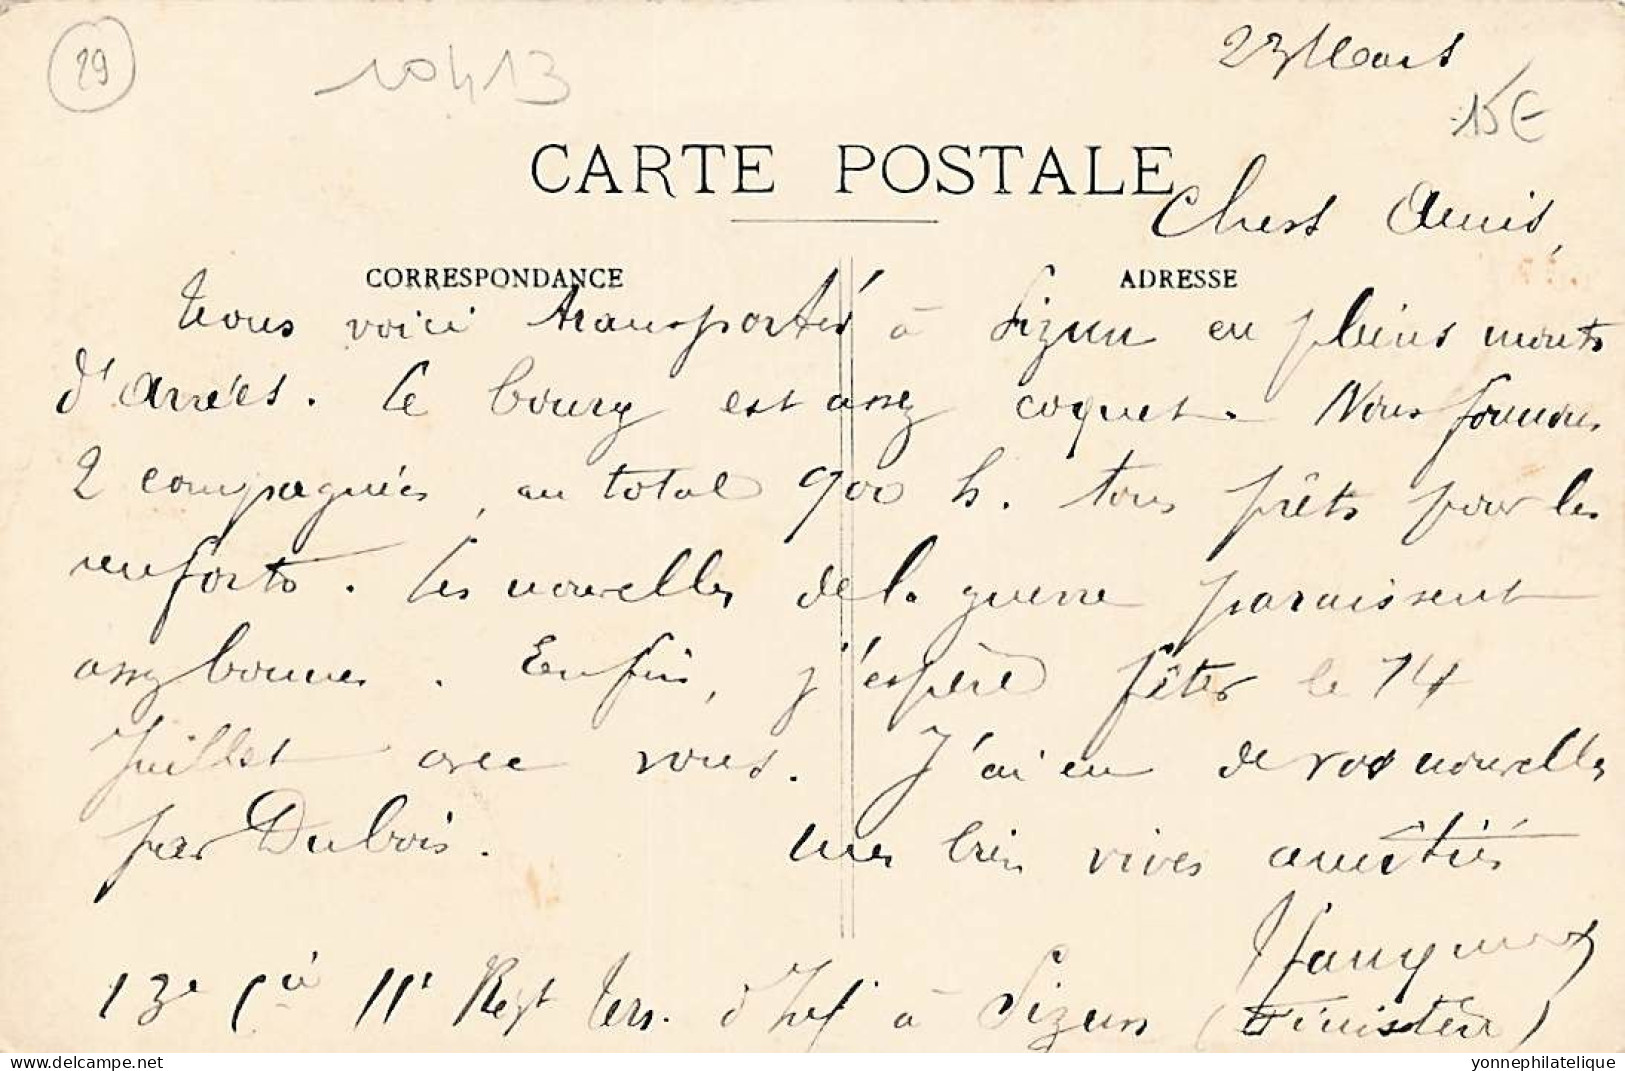 29
10413
23 Mars
15€
CARTE POSTALE
Chers Amis,
CORRESPONDANCE
ADRESSE
Nous voici transportés à Sizun en pleins monts
d'Arrées. Le bourg est assez coquet. Nous formons
2 compagnies, au total 900 h. tous prêts pour les
renforts. Les nouvelles de la guerre paraissent
assez bonnes. Enfin, j'espère fêter le 14
Juillet avec vous. J'ai eu de vos nouvelles
par Dubois. Mes bien vives amitiés
13e Cie 11e Regt Ters. d'Inf à Sizun (Finistère)
delcampe.net
yonnephilatelique